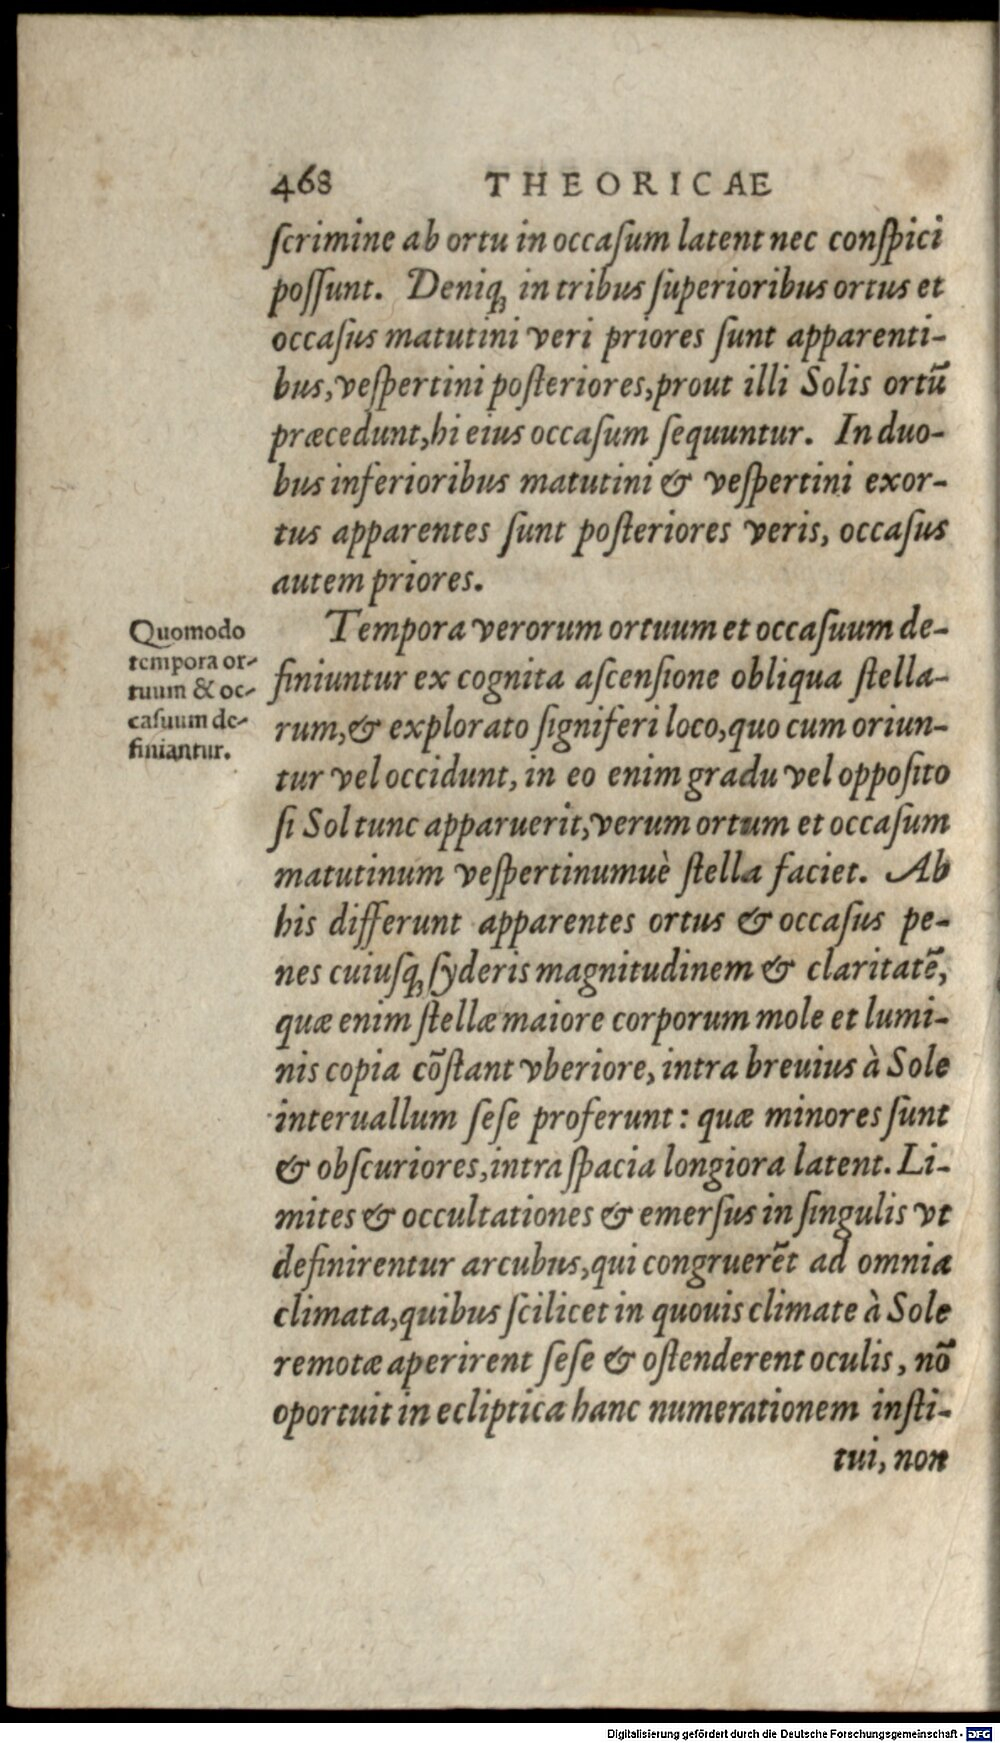 468 THEORICAE
ſcrimine ab ortu in occaſum latent nec conſpici
poſſunt. Deniqꝫ in tribus ſuperioribus ortus et
occaſus matutini veri priores ſunt apparenti-
bus, veſpertini poſteriores, prout illi Solis ortū
præcedunt, hi eius occaſum ſequuntur. In duo-
bus inferioribus matutini & veſpertini exor-
tus apparentes ſunt poſteriores veris, occaſus
autem priores.
Quomodo
tempora or-
tuum & oc-
caſuum de-
finiantur.
Tempora verorum ortuum et occaſuum de-
finiuntur ex cognita aſcenſione obliqua ſtella-
rum, & explorato ſigniferi loco, quo cum oriun-
tur vel occidunt, in eo enim gradu vel oppoſito
ſi Sol tunc apparuerit, verum ortum et occaſum
matutinum veſpertinumuè ſtella faciet. Ab
his differunt apparentes ortus & occaſus pe-
nes cuiuſqꝫ ſyderis magnitudinem & claritatē,
quæ enim ſtellæ maiore corporum mole et lumi-
nis copia cōſtant vberiore, intra breuius à Sole
interuallum ſeſe proferunt: quæ minores ſunt
& obſcuriores, intra ſpacia longiora latent. Li-
mites & occultationes & emerſus in ſingulis vt
definirentur arcubus, qui congruerēt ad omnia
climata, quibus ſcilicet in quouis climate à Sole
remotæ aperirent ſeſe & oſtenderent oculis, nō
oportuit in ecliptica hanc numerationem inſti-
tui, non
Digitalisierung gefördert durch die Deutsche Forschungsgemeinschaft - DFG